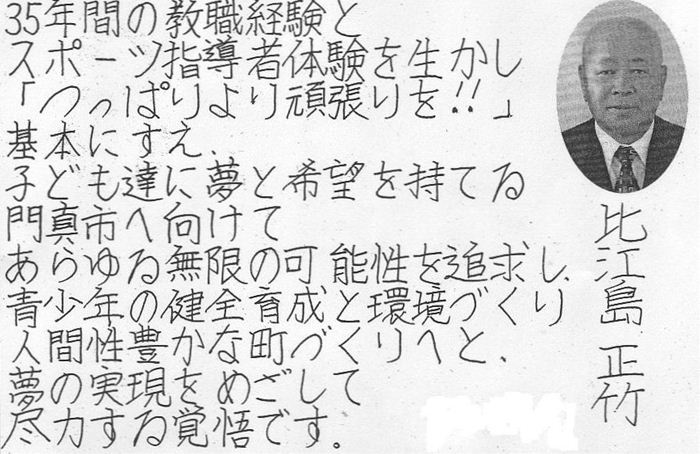 35年間の教職経験と
スポーツ指導者体験を生かし
「つっぱりより頑張りを!!」
基本にすえ、
子ども達に夢と希望を持てる
門真市へ向けて
あらゆる無限の可能性を追求し、
青少年の健全育成と環境づくり
人間性豊かな町づくりへと、
夢の実現をめざして
尽力する覚悟です。
比江島正竹